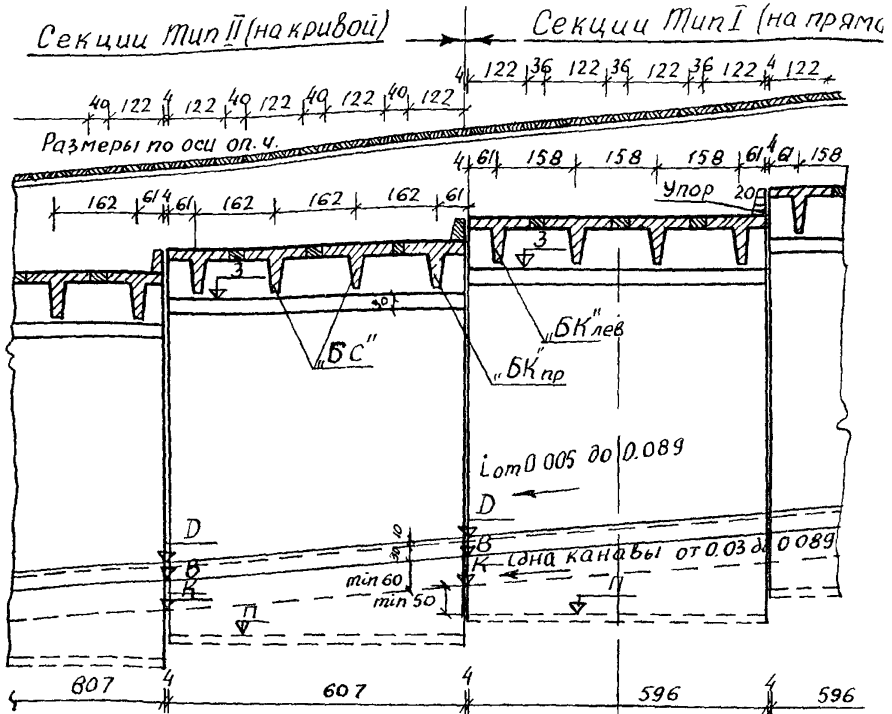 Секции Тип II (на кривой) Секции Тип I (на прямо
4 122 36 122 36 122 36 122 4 122
40 122 4 122 40 122 40 122 40 122
Размеры по оси оп. ч.
4 61 158 158 158 61 4 61 158
Упор 20
162 61 4 61 162 162 162 61
З З
30
„БС”
„БК”лев
„БК”пр
i от 0.005 до 0.089
D D
10
В 30 В
К min 60 К i дна канавы от 0.03 до 0.089
min 50
П П
4 4 4
607 607 596 596